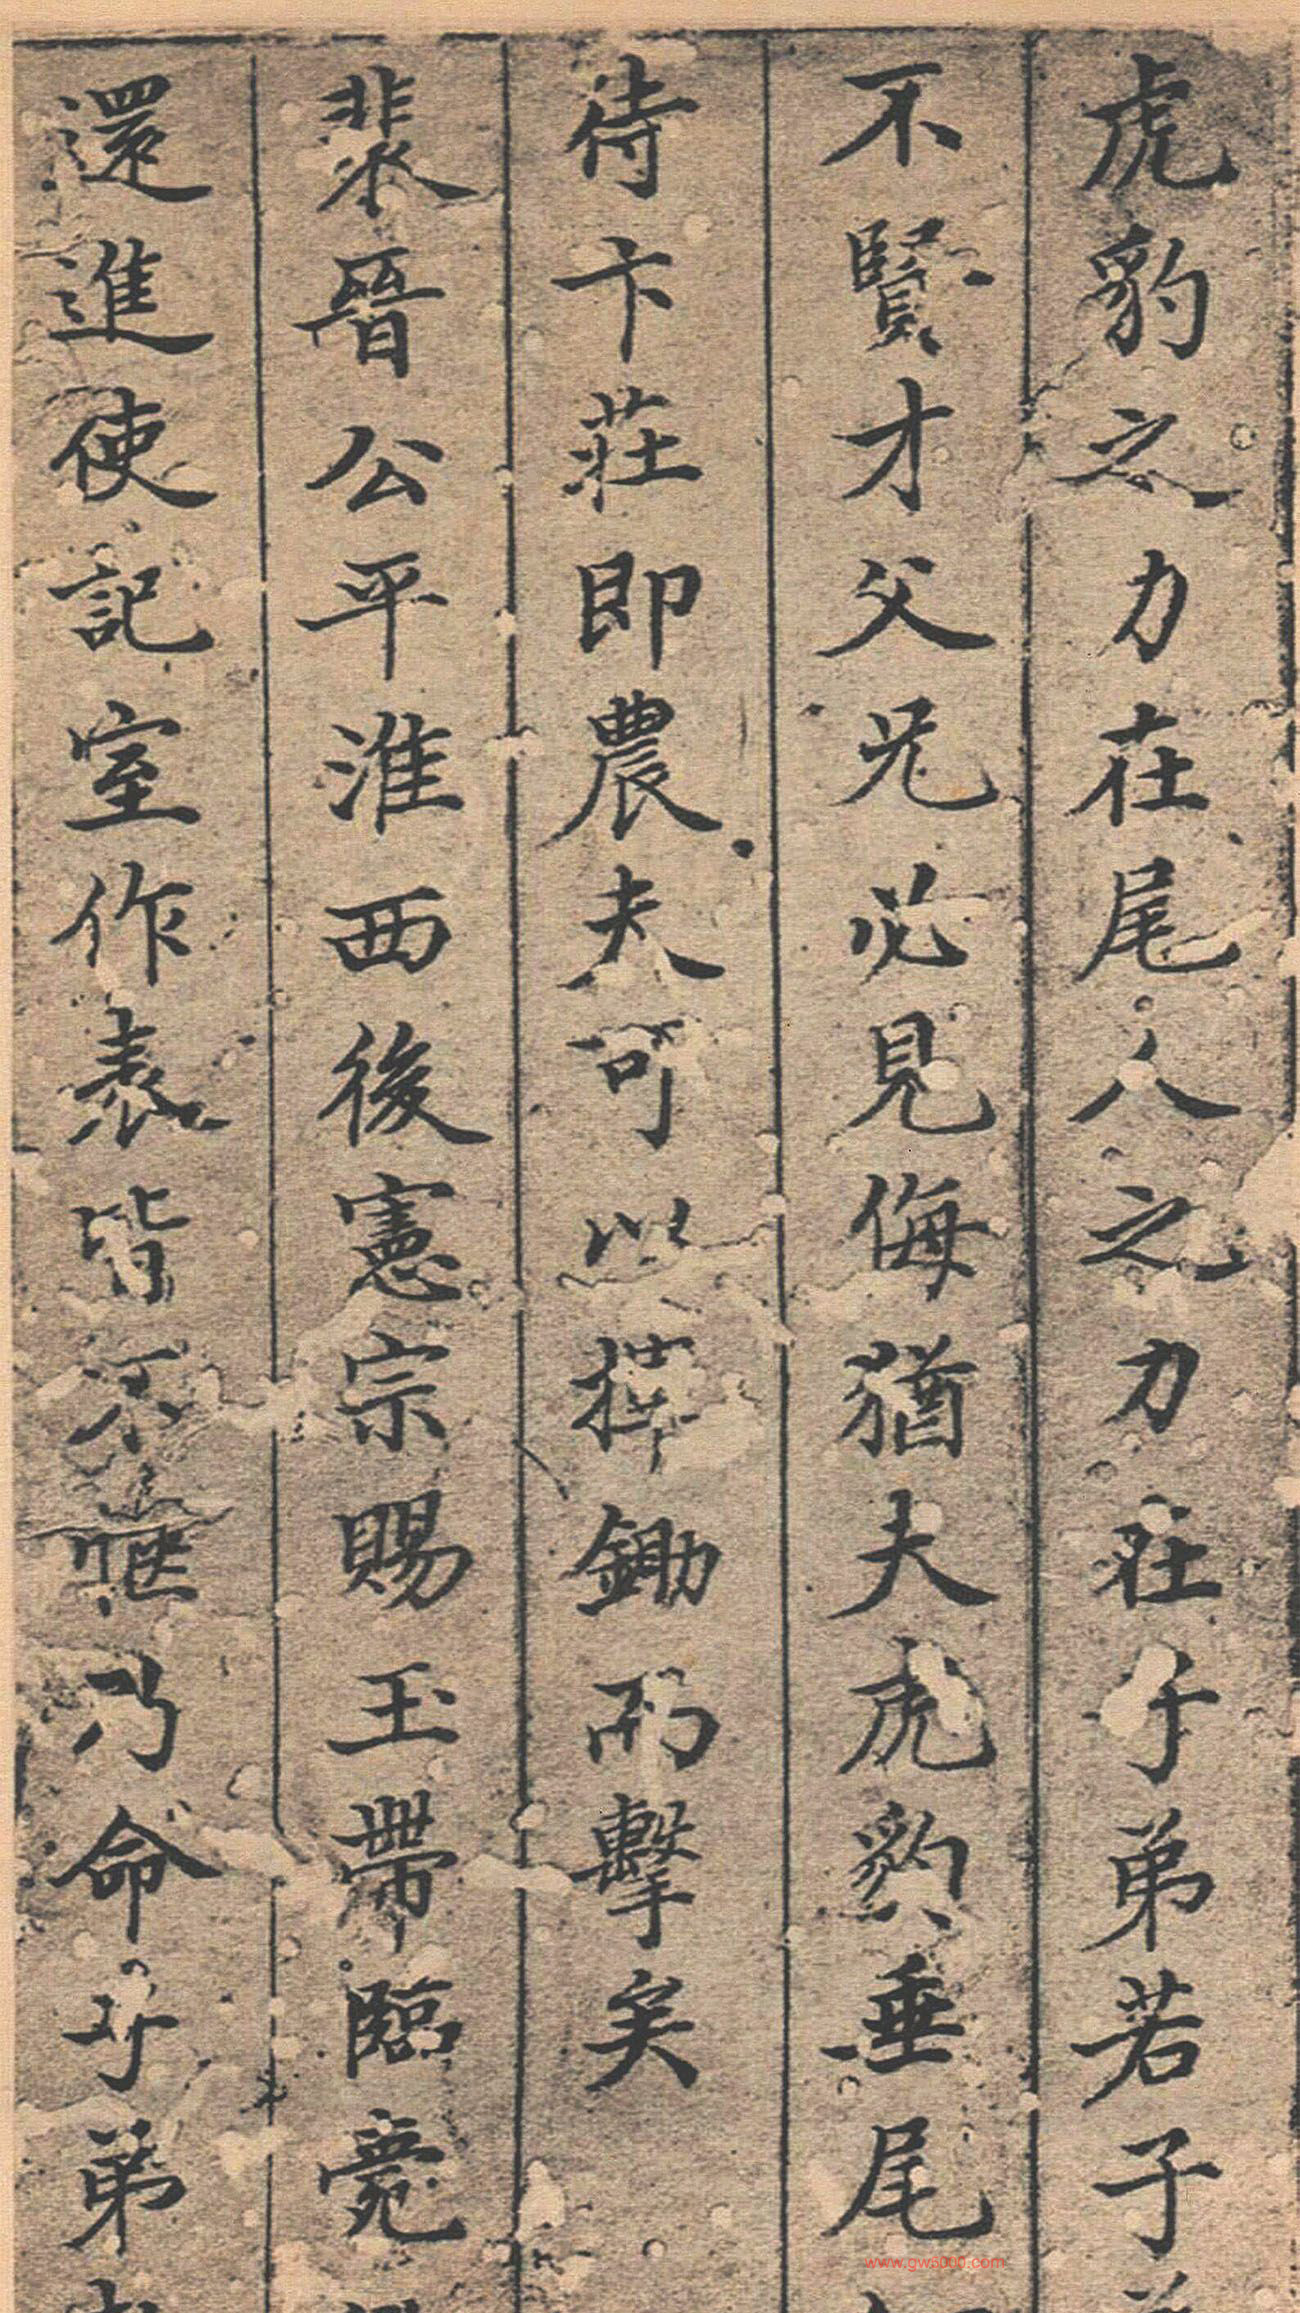 虎豹之力在尾人之力在子弟若子
不賢才父兄必見侮猶夫虎豹垂尾
待卞莊即農夫可以揮鋤而擊矣
裴晉公平淮西後憲宗賜玉帶臨薨
還進使記室作表皆不愜乃命子弟
www.gw5000.com